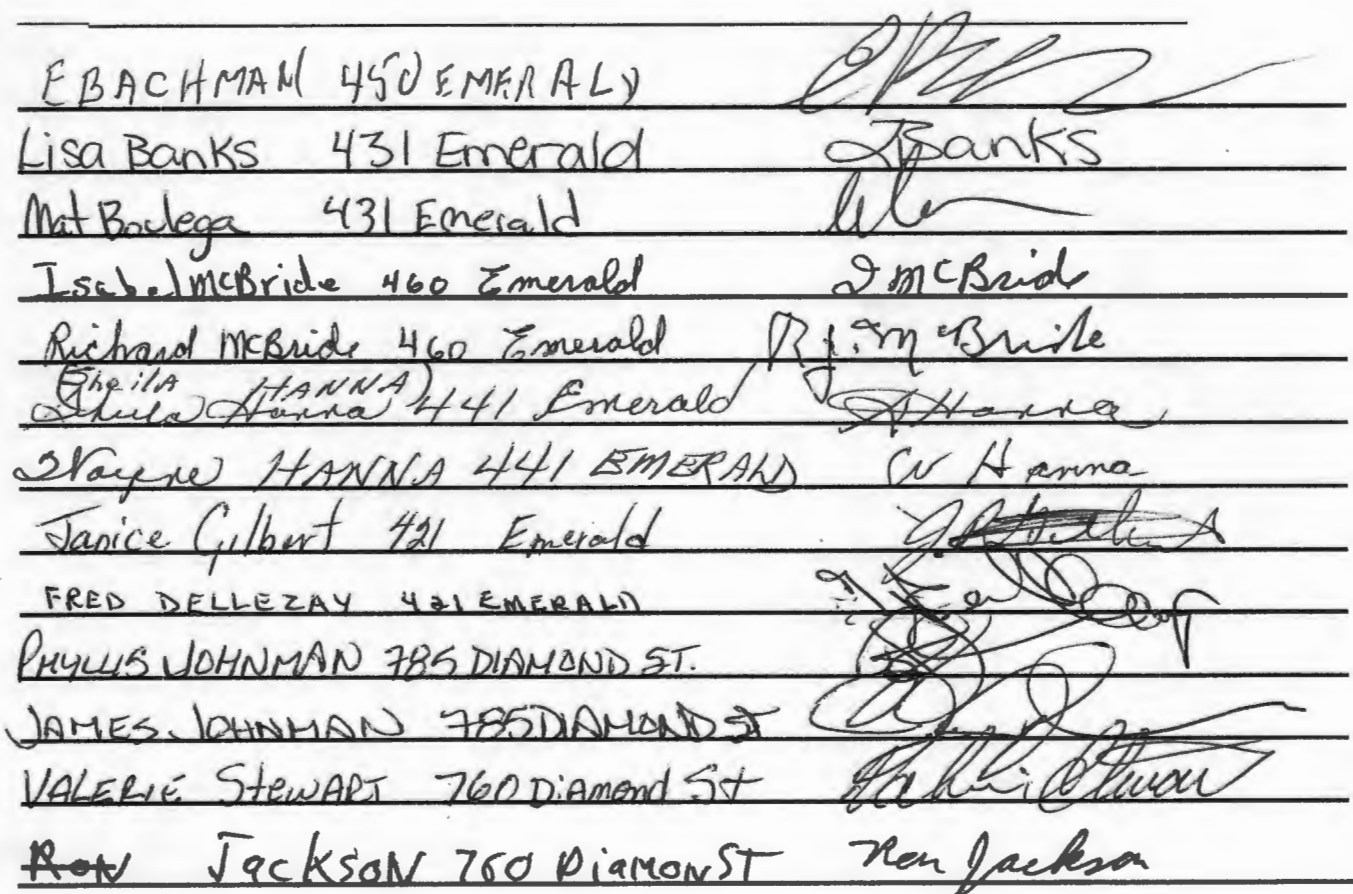 E BACHMAN 450 EMERALD
Lisa Banks 431 Emerald LBanks
Mat 431 Emerald
Isabel McBride 460 Emerald I McBride
Richard McBride 460 Emerald R.J. McBride
(Sheila HANNA)
Sheila Hanna 441 Emerald S Hanna
Wayne HANNA 441 EMERALD W Hanna
Janice Gilbert 421 Emerald
FRED DELLEZAY 421 EMERALD
PHYLLIS JOHNMAN 785 DIAMOND ST.
JAMES JOHNMAN 785 DIAMOND ST
VALERIE STEWART 760 Diamond St Valerie Stewart
Ron JACKSON 760 DiAMON ST Ron Jackson